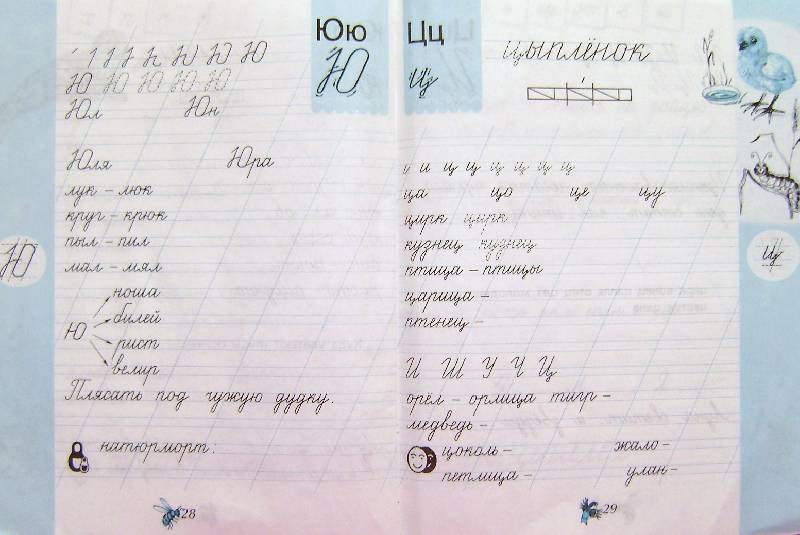 Юю
Ю
1 1 1 1 Ю Ю Ю
Ю Ю Ю Ю Ю Ю
Юл Юн
Юля Юра
лук – люк
круг – крюк
пыл – пил
мал – мял
Ю
ноша
билей
рист
велир
Плясать под чужую дудку.
натюрморт:
Ю
28
Цц
Ц
цыплёнок
и и ц ц ц ц ц ц
ца цо це цу
цирк цирк
кузнец кузнец
птица – птицы
царица –
птенец –
И Ш У Ч Ц
орёл – орлица тигр –
медведь –
цоколь – жало –
петлица – улан –
Ц
29